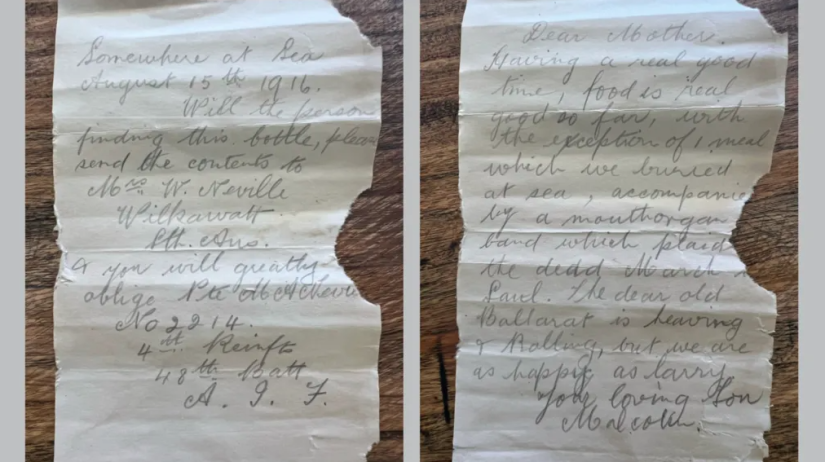 Somewhere at Sea
August 15th 1916.
Will the person
finding this bottle, please
send the contents to
Mrs W. Neville
Wilkawatt
Sth. Aus.
& you will greatly
oblige Pte M A
No 2214.
4th Reinfts
48th Batt
A. I. F.
Dear Mother.
Having a real good
time, food is real
good so far, with
the exception of 1 meal
which we buried
at sea, accompanie
by a mouthorgan
band which plaid
the dedd March
Saul. The dear old
Ballarat is heaving
& Rolling, but we are
as happy as larry
Your loving Son
Malcolm.